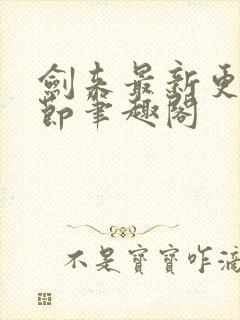 劍来最新更
節筆趣閣
不是寶寶咋滴